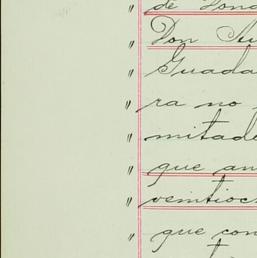 " de
" Don
" Guada
" ra no
" mitad
" que an
" veintioc
" que con